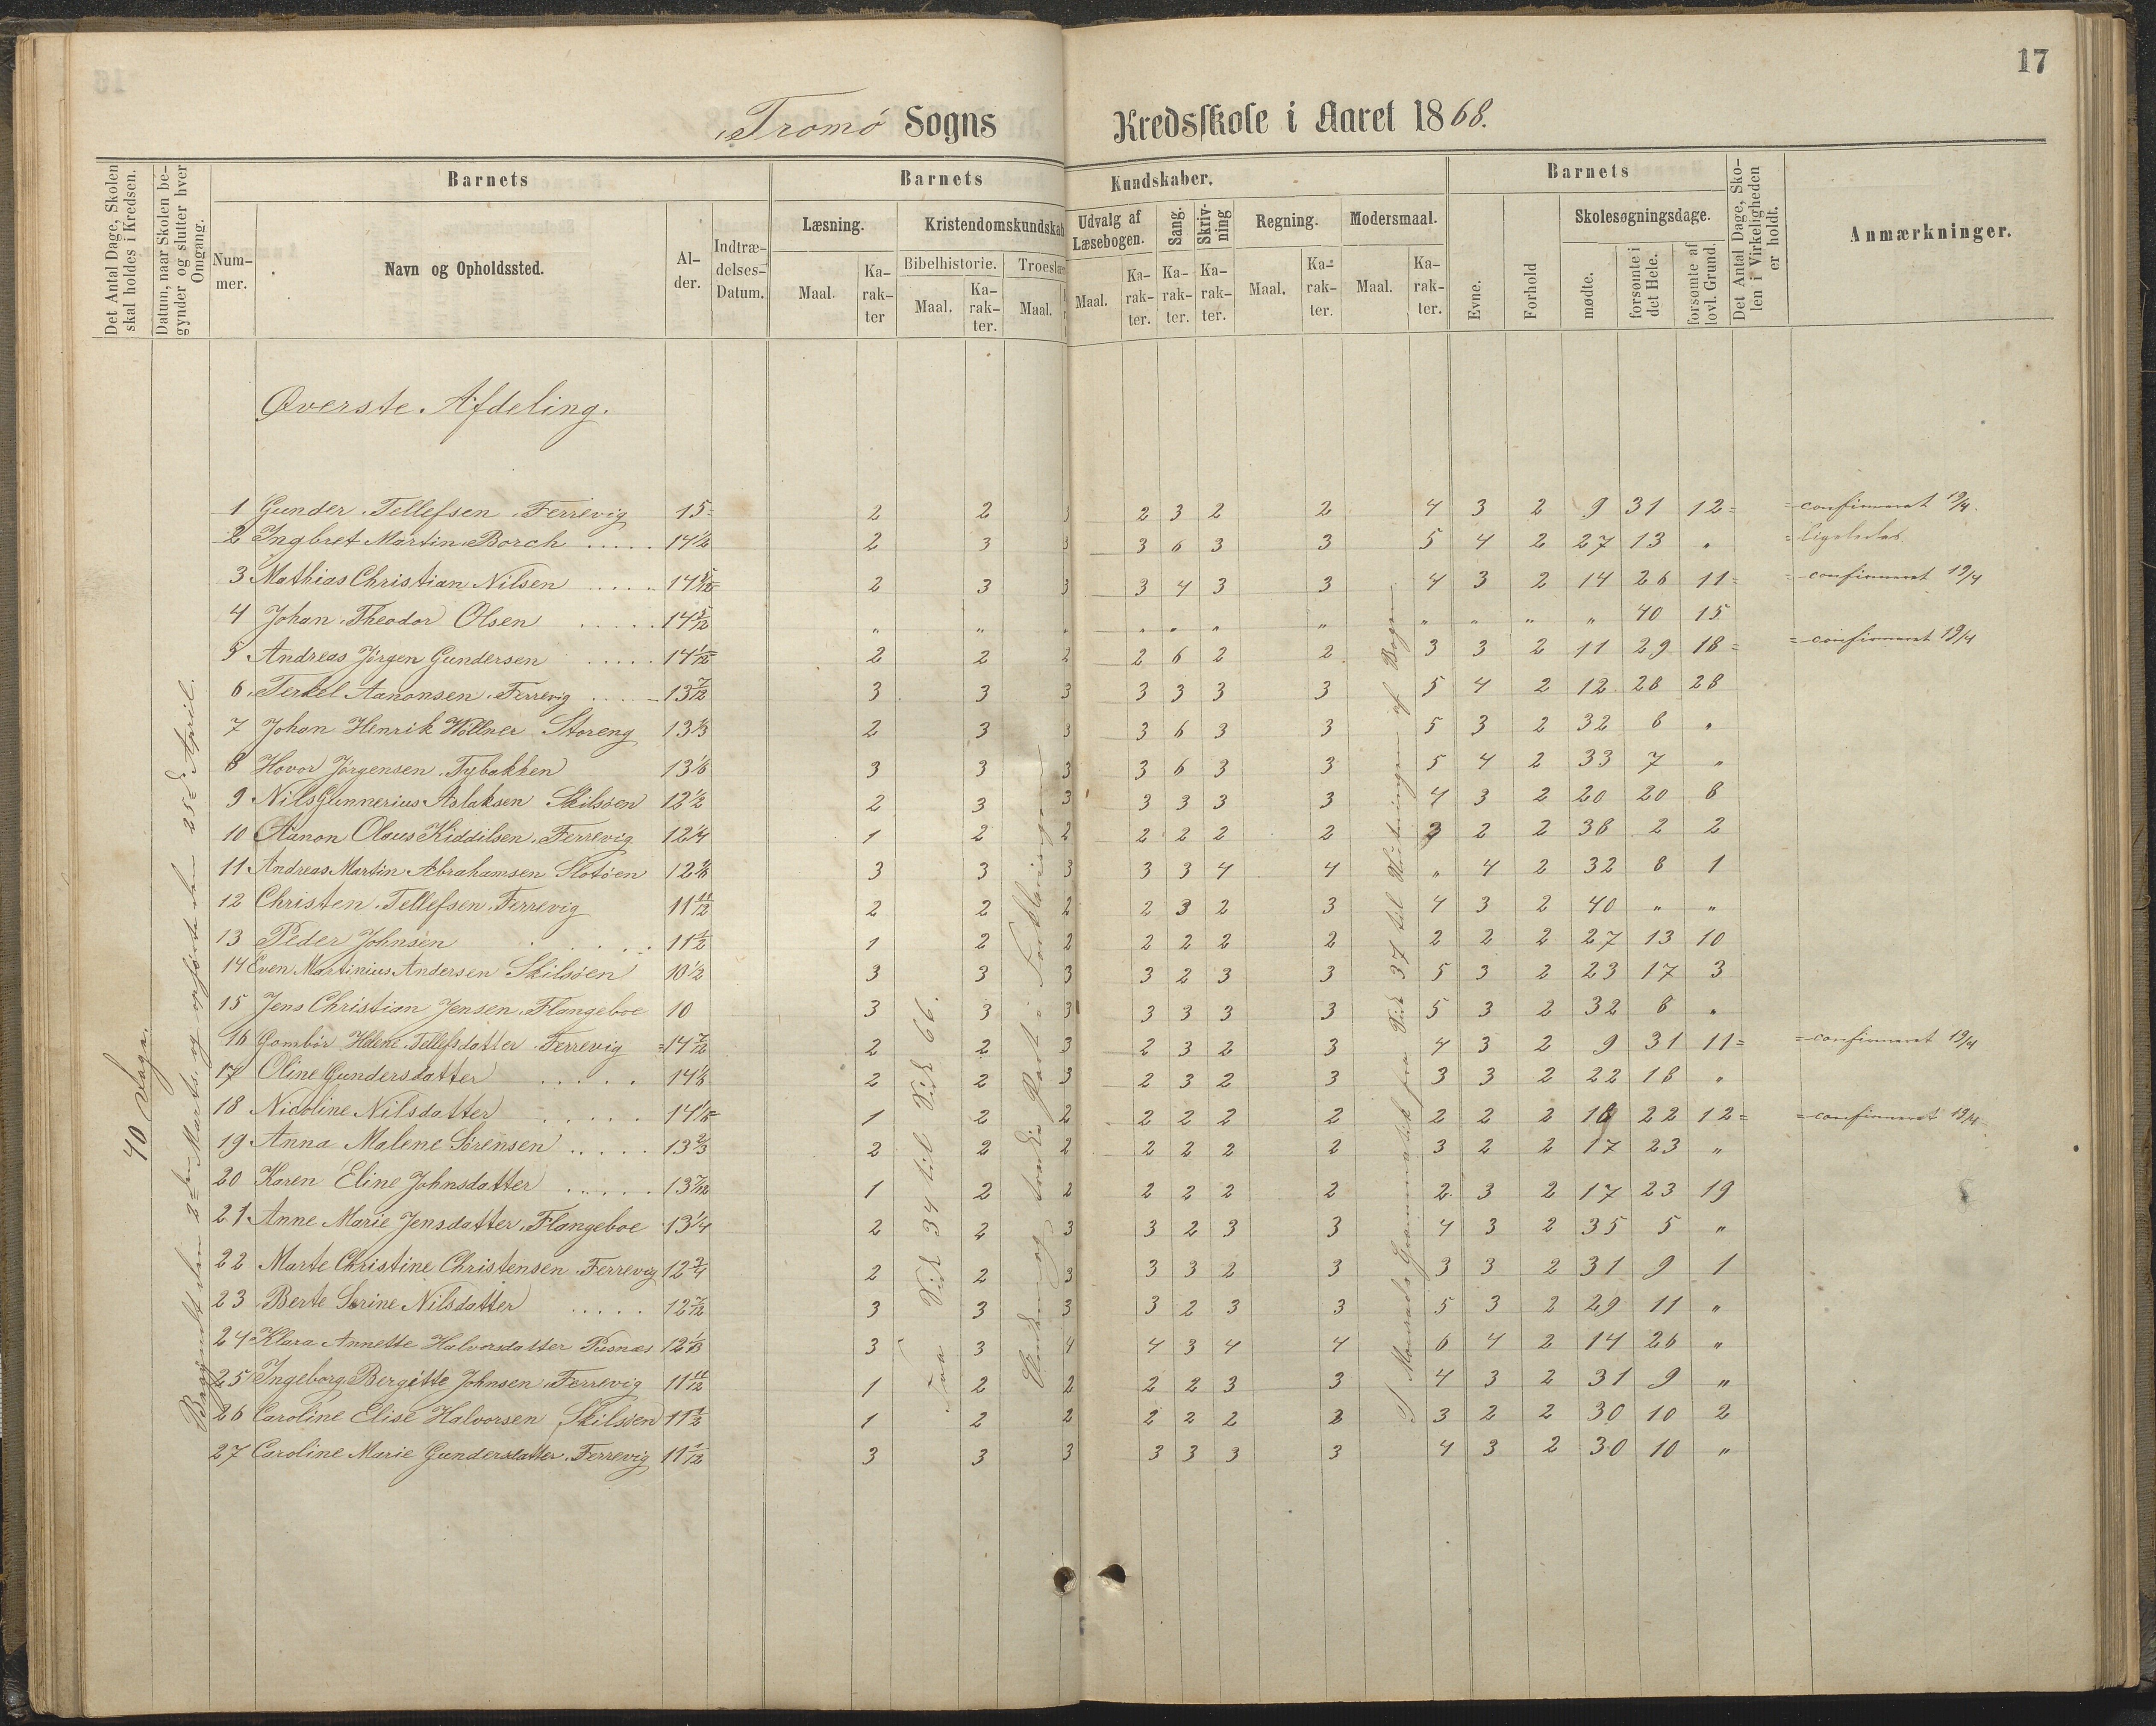 17
Tromø Sogns Kredsskole i Aaret 1868.
Det Antal Dage, Skolen skal holdes i Kredsen.
Datum, naar Skolen begynder og slutter hver Omgang.
Barnets
Barnets Kundskaber.
Barnets
Det Antal Dage, Skolen i Virkeligheden er holdt.
Anmærkninger.
Nummer.
Navn og Opholdssted.
Alder.
Indtrædelses-Datum.
Læsning.
Kristendomskundskab
Udvalg af Læsebogen.
Sang.
Skrivning
Regning.
Modersmaal.
Evne.
Forhold
Skolesøgningsdage.
Bibelhistorie.
Troeslær
Maal.
Karakter
Maal.
Karakter.
Maal.
Maal.
Karakter.
Karakter.
Karakter.
Maal.
Karakter.
Maal.
Karakter.
mødte.
forsømte i det Hele.
forsømte af lovl. Grund.
Øverste Afdeling.
40 Dage.
Begyndt den 2den Marts og opførte den 25de April.
Fra Sid 34 til Sid 66.
Part i Forklaringen
I Grammatik fra Sid 37 til Slutningen af Bogen
1 Gunder Tellefsen Ferrevig 15 2 2 3 2 3 2 2 4 3 2 9 31 12 = confirmeret 19/4.
2 Ingbret Martin Borch ..... 14 1/2 2 3 3 3 6 3 3 5 4 2 27 13 " = ligeledes
3 Mathias Christian Nilsen ..... 14 5/12 2 3 3 3 4 3 3 4 3 2 14 26 11 = confirmeret 19/4
4 Johan Theodor Olsen ..... 14 5/12 " " " " " " " " " " " 40 15
5 Andreas Jörgen Gundersen ..... 14 1/12 2 2 2 2 6 2 2 3 3 2 11 29 18 = confirmeret 19/4
6 Terkel Aanonsen Ferrevig 13 7/12 3 3 3 3 3 3 3 5 4 2 12 28 28
7 Johan Henrik Wöllner Storeng 13 1/3 2 3 3 3 6 3 3 5 3 2 32 8 "
8 Hovor Jørgensen Tybakken 13 1/6 3 3 3 3 6 3 3 5 4 2 33 7 "
9 Nils Gunnerius Aslaksen Skilsöen 12 1/2 2 3 3 3 3 3 3 4 3 2 20 20 8
10 Aanon Olaus Kiddilsen Ferrevig 12 1/4 1 2 2 2 2 2 2 3 2 2 38 2 2
11 Andreas Martin Abrahamsen Slotöen 12 1/6 3 3 3 3 3 4 4 " 4 2 32 8 1
12 Christen Tellefsen Ferrevig 11 11/12 2 2 2 2 3 2 3 4 3 2 40 " "
13 Peder Johnsen ..... 11 1/2 1 2 2 2 2 2 2 2 2 2 27 13 10
14 Even Martinius Andersen Skilsöen 10 1/2 3 3 3 3 2 3 3 5 3 2 23 17 3
15 Jens Christian Jensen Flangeboe 10 3 3 3 3 3 3 3 5 3 2 32 8 "
16 Gombör Helene Tellefsdatter Ferrevig 14 7/12 2 2 3 2 3 2 3 4 3 2 9 31 11 = confirmeret 19/4
17 Oline Gundersdatter ..... 14 1/3 2 2 3 2 3 2 3 3 3 2 22 18 "
18 Nicoline Nilsdatter ..... 14 1/6 1 2 2 2 2 2 2 2 2 2 18 22 12 = confirmeret 19/4
19 Anna Malene Sörensen ..... 13 2/3 2 2 2 2 2 2 2 3 2 2 17 23 "
20 Karen Eline Johnsdatter ..... 13 7/12 1 2 2 2 2 2 2 2 3 2 17 23 19
21 Anne Marie Jensdatter Flangeboe 13 1/4 2 2 3 3 2 3 3 4 3 2 35 5 "
22 Marte Christine Christensen Ferrevig 12 3/4 2 2 3 3 3 2 3 3 3 2 31 9 1
23 Berte Serine Nilsdatter ..... 12 7/12 3 3 3 3 2 3 3 5 3 2 29 11 "
24 Klara Annette Halvorsdatter Pusnæs 12 1/3 3 3 4 4 3 4 4 6 4 2 14 26 "
25 Ingeborg Bergitte Johnsen Ferrevig 11 11/12 1 2 2 2 2 3 3 4 3 2 31 9 "
26 Caroline Elise Halvorsen Skilsöen 11 1/2 1 2 2 2 2 2 2 3 2 2 30 10 2
27 Caroline Marie Gundersdatter Ferrevig 11 1/12 3 3 3 3 3 3 3 4 3 2 30 10 "